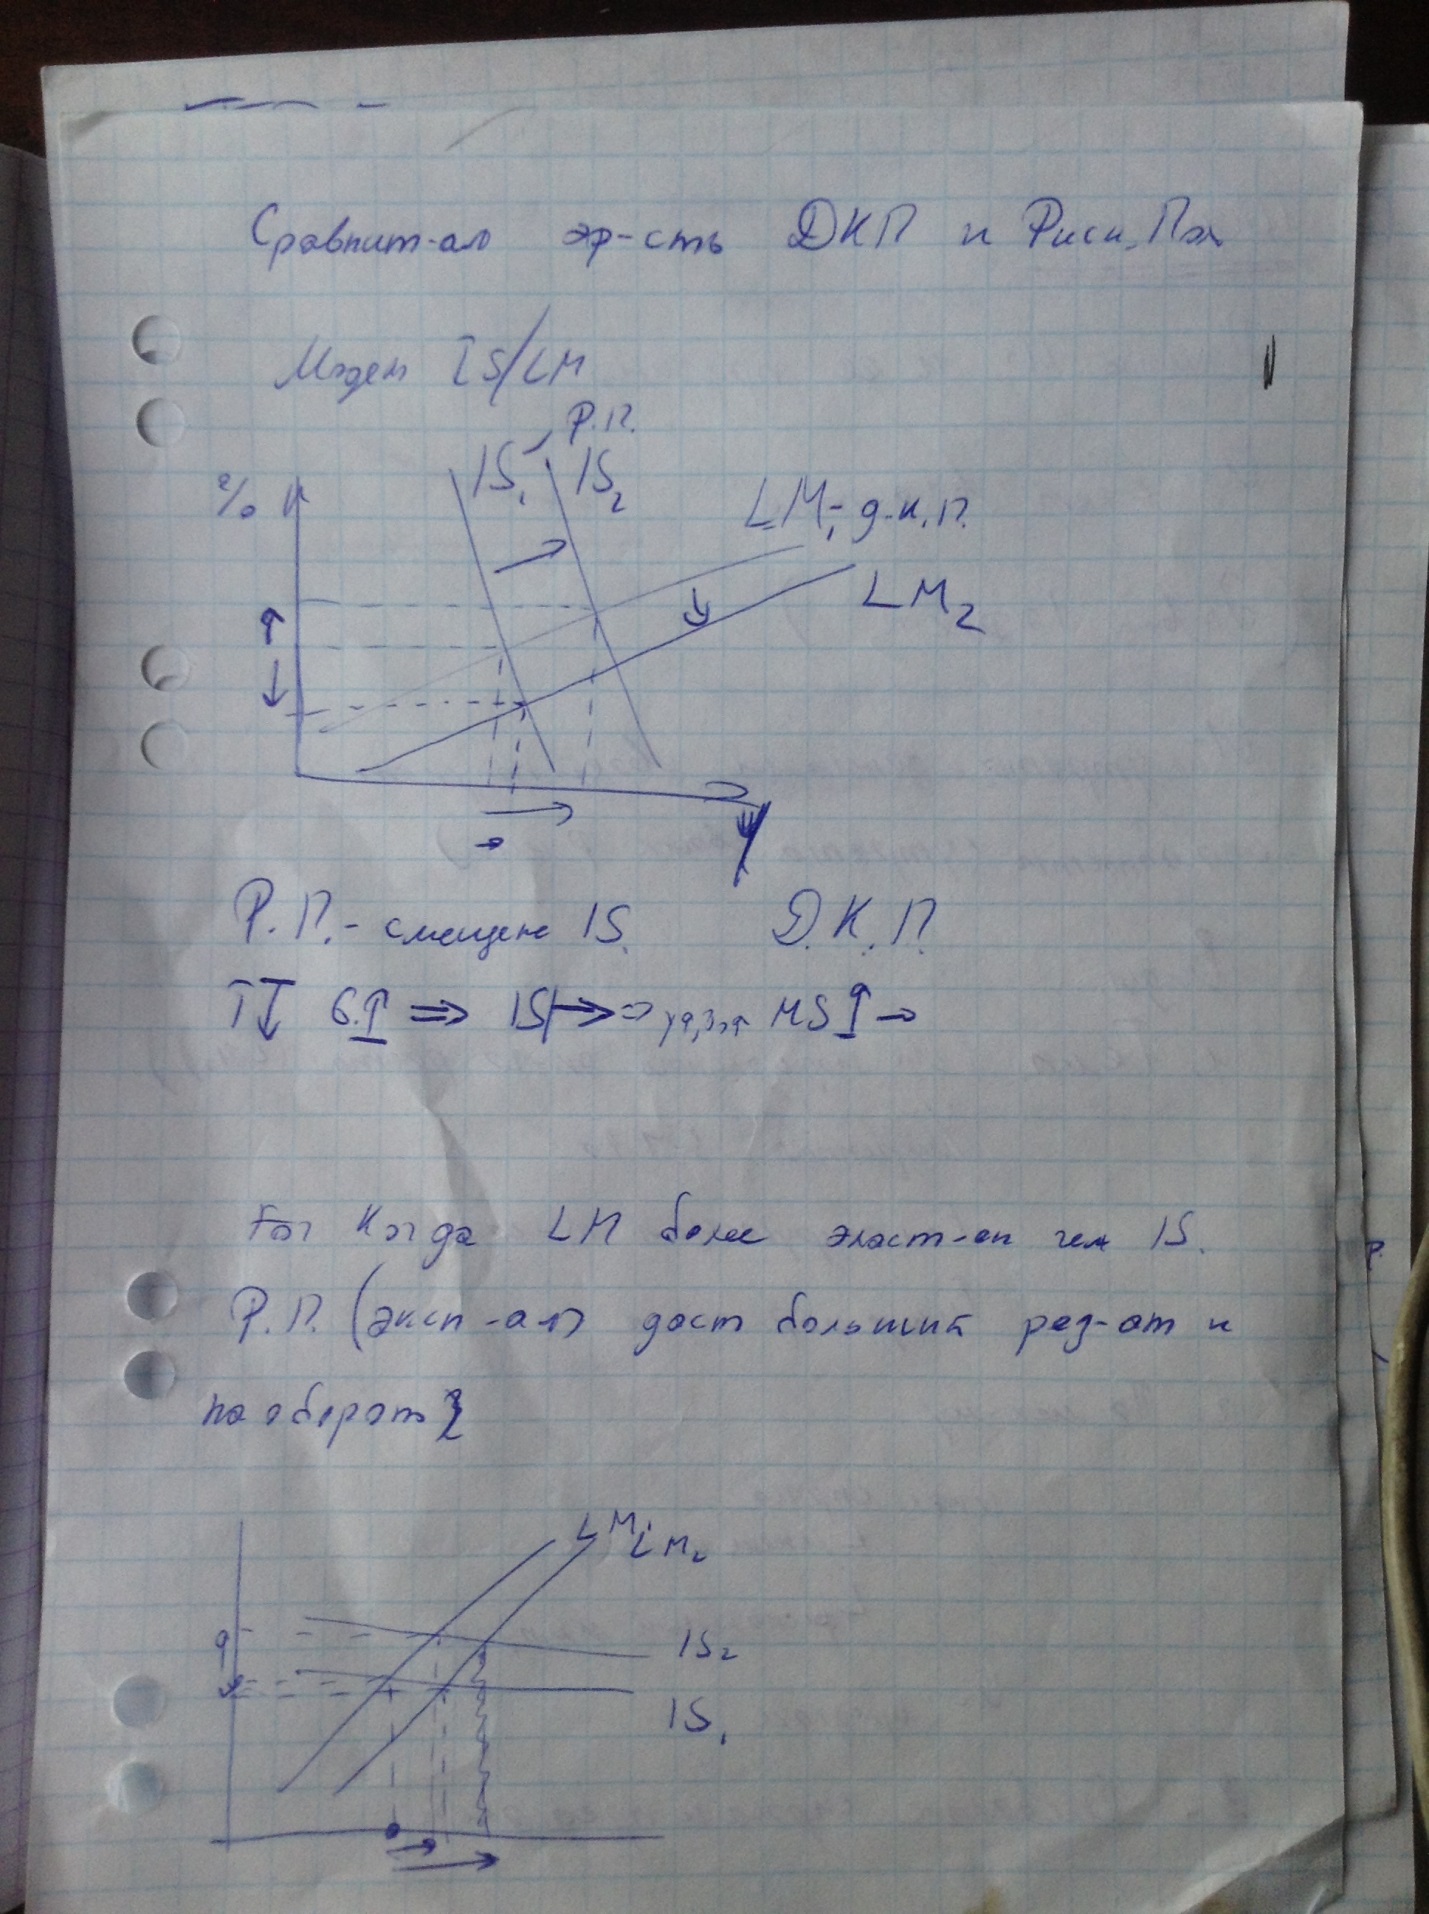 Сравнит-ая эф-сть ДКП и Фиск. Пол
Модель IS/LM
Ф.П.
% IS₁ IS₂
LM₁ - д.к.п.
LM₂
y
Ф.П. - смещение IS. Д.К.П.
T↓ G↑ ⇒ IS→ ⇒ MS↑ →
Когда LM более эласт-ен чем IS.
Ф.П. (эксп-ая) даст больший рез-ат и
наоборот
LM₁ LM₂
IS₂
IS₁